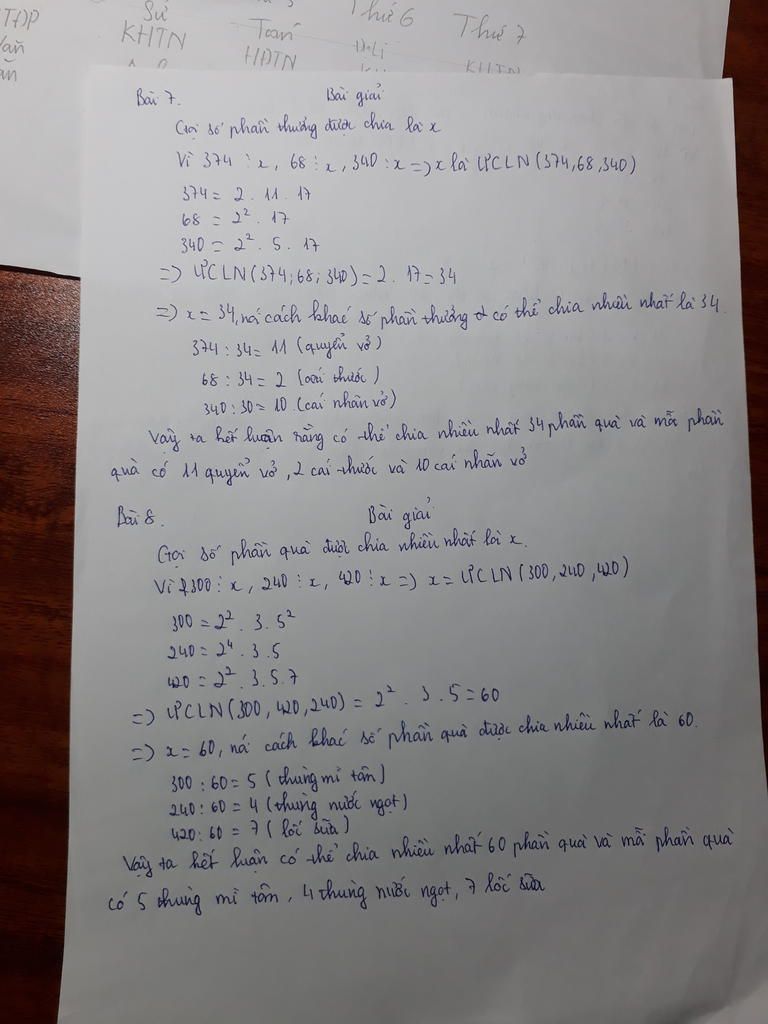 TĐP
Văn
ăn
Sử
KHTN
Toán
HĐTN
Thứ 6
Đ.Lí
Thứ 7
KHTN
Bài 7. Bài giải
Gọi số phần thưởng được chia là x
Vì 374 ⋮ x, 68 ⋮ x, 340 ⋮ x => x là ƯCLN(374,68,340)
374 = 2 . 11 . 17
68 = 2² . 17
340 = 2² . 5 . 17
=> ƯCLN(374; 68; 340) = 2 . 17 = 34
=> x = 34, nói cách khác số phần thưởng có thể chia nhiều nhất là 34.
374 : 34 = 11 (quyển vở)
68 : 34 = 2 (cái thước)
340 : 30 = 10 (cái nhãn vở)
Vậy ta kết luận rằng có thể chia nhiều nhất 34 phần quà và mỗi phần
quà có 11 quyển vở, 2 cái thước và 10 cái nhãn vở
Bài 8. Bài giải
Gọi số phần quà được chia nhiều nhất là x.
Vì 300 ⋮ x, 240 ⋮ x, 420 ⋮ x => x = ƯCLN(300, 240, 420)
300 = 2² . 3 . 5²
240 = 2⁴ . 3 . 5
420 = 2² . 3 . 5 . 7
=> ƯCLN(300, 420, 240) = 2² . 3 . 5 = 60
=> x = 60, nói cách khác số phần quà được chia nhiều nhất là 60.
300 : 60 = 5 (thùng mì tôm)
240 : 60 = 4 (thùng nước ngọt)
420 : 60 = 7 (lốc sữa)
Vậy ta kết luận có thể chia nhiều nhất 60 phần quà và mỗi phần quà
có 5 thùng mì tôm, 4 thùng nước ngọt, 7 lốc sữa